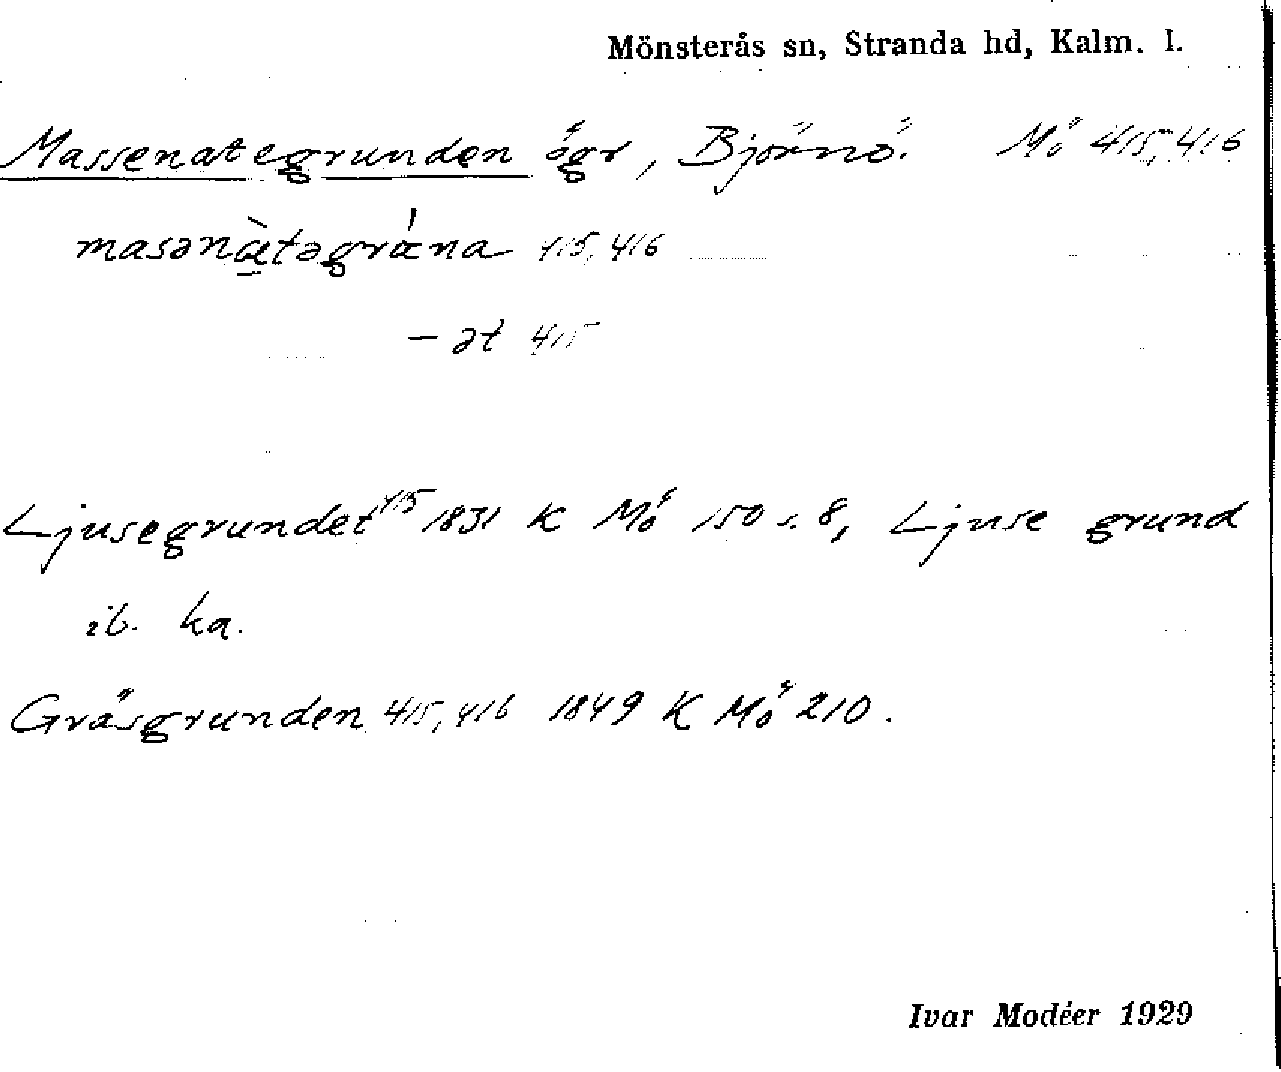 Mönsterås sn, Stranda hd, Kalm. l.
Massenategrunden ögr, Björnö. Mö 415, 416
masənàtəgrǿna 415, 416
– ət 415
Ljusegrundet 415 1831 K Mö 150 s. 8, Ljuse grund
ib. ka.
Gräsgrunden 415, 416 1849 K Mö 210.
Ivar Modéer 1929